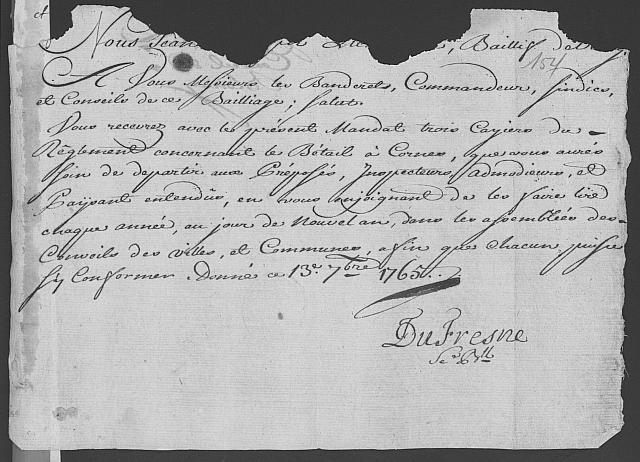 Nous Jean Baillif de
154
A Vous Messieurs les Banderets, Commandeur, Sindics,
et Conseils de ce Bailliage; Salut.
Vous recevres avec le présent Mandat trois Cayiers du
Règlement concernant le Bétail à Cornes, que vous aurés
soin de departir aux Préposés, Inspecteurs, Admodieurs, et
Païsant entendûs, en vous enjoignant de les faire lire
chaque année, au jour de Nouvel an, dans les assemblées des
Conseils des villes, et Communes, afin que chacun puisse
s'y Conformer. Donné ce 13.e 7bre 1765.
DuFresne